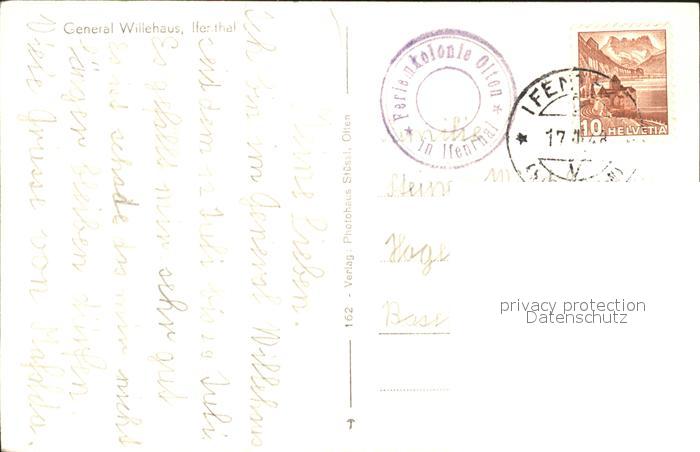 General Willehaus, Ifenthal
Meine Lieben.
Ich bin im General Willehus
seit dem 2 Juli bis 22 Juli
Es gefällt mir sehr gut
Es ist schade das wir nicht
länger bleiben dürfen
Viele Grüsse von Mafalda.
162 - Verlag: Photohaus Stüssi, Olten
Ferienkolonie Olten
in Ifenthal
10 HELVETIA
IFENTHAL
17
Familie
Stein
Hage
Base
privacy protection
Datenschutz